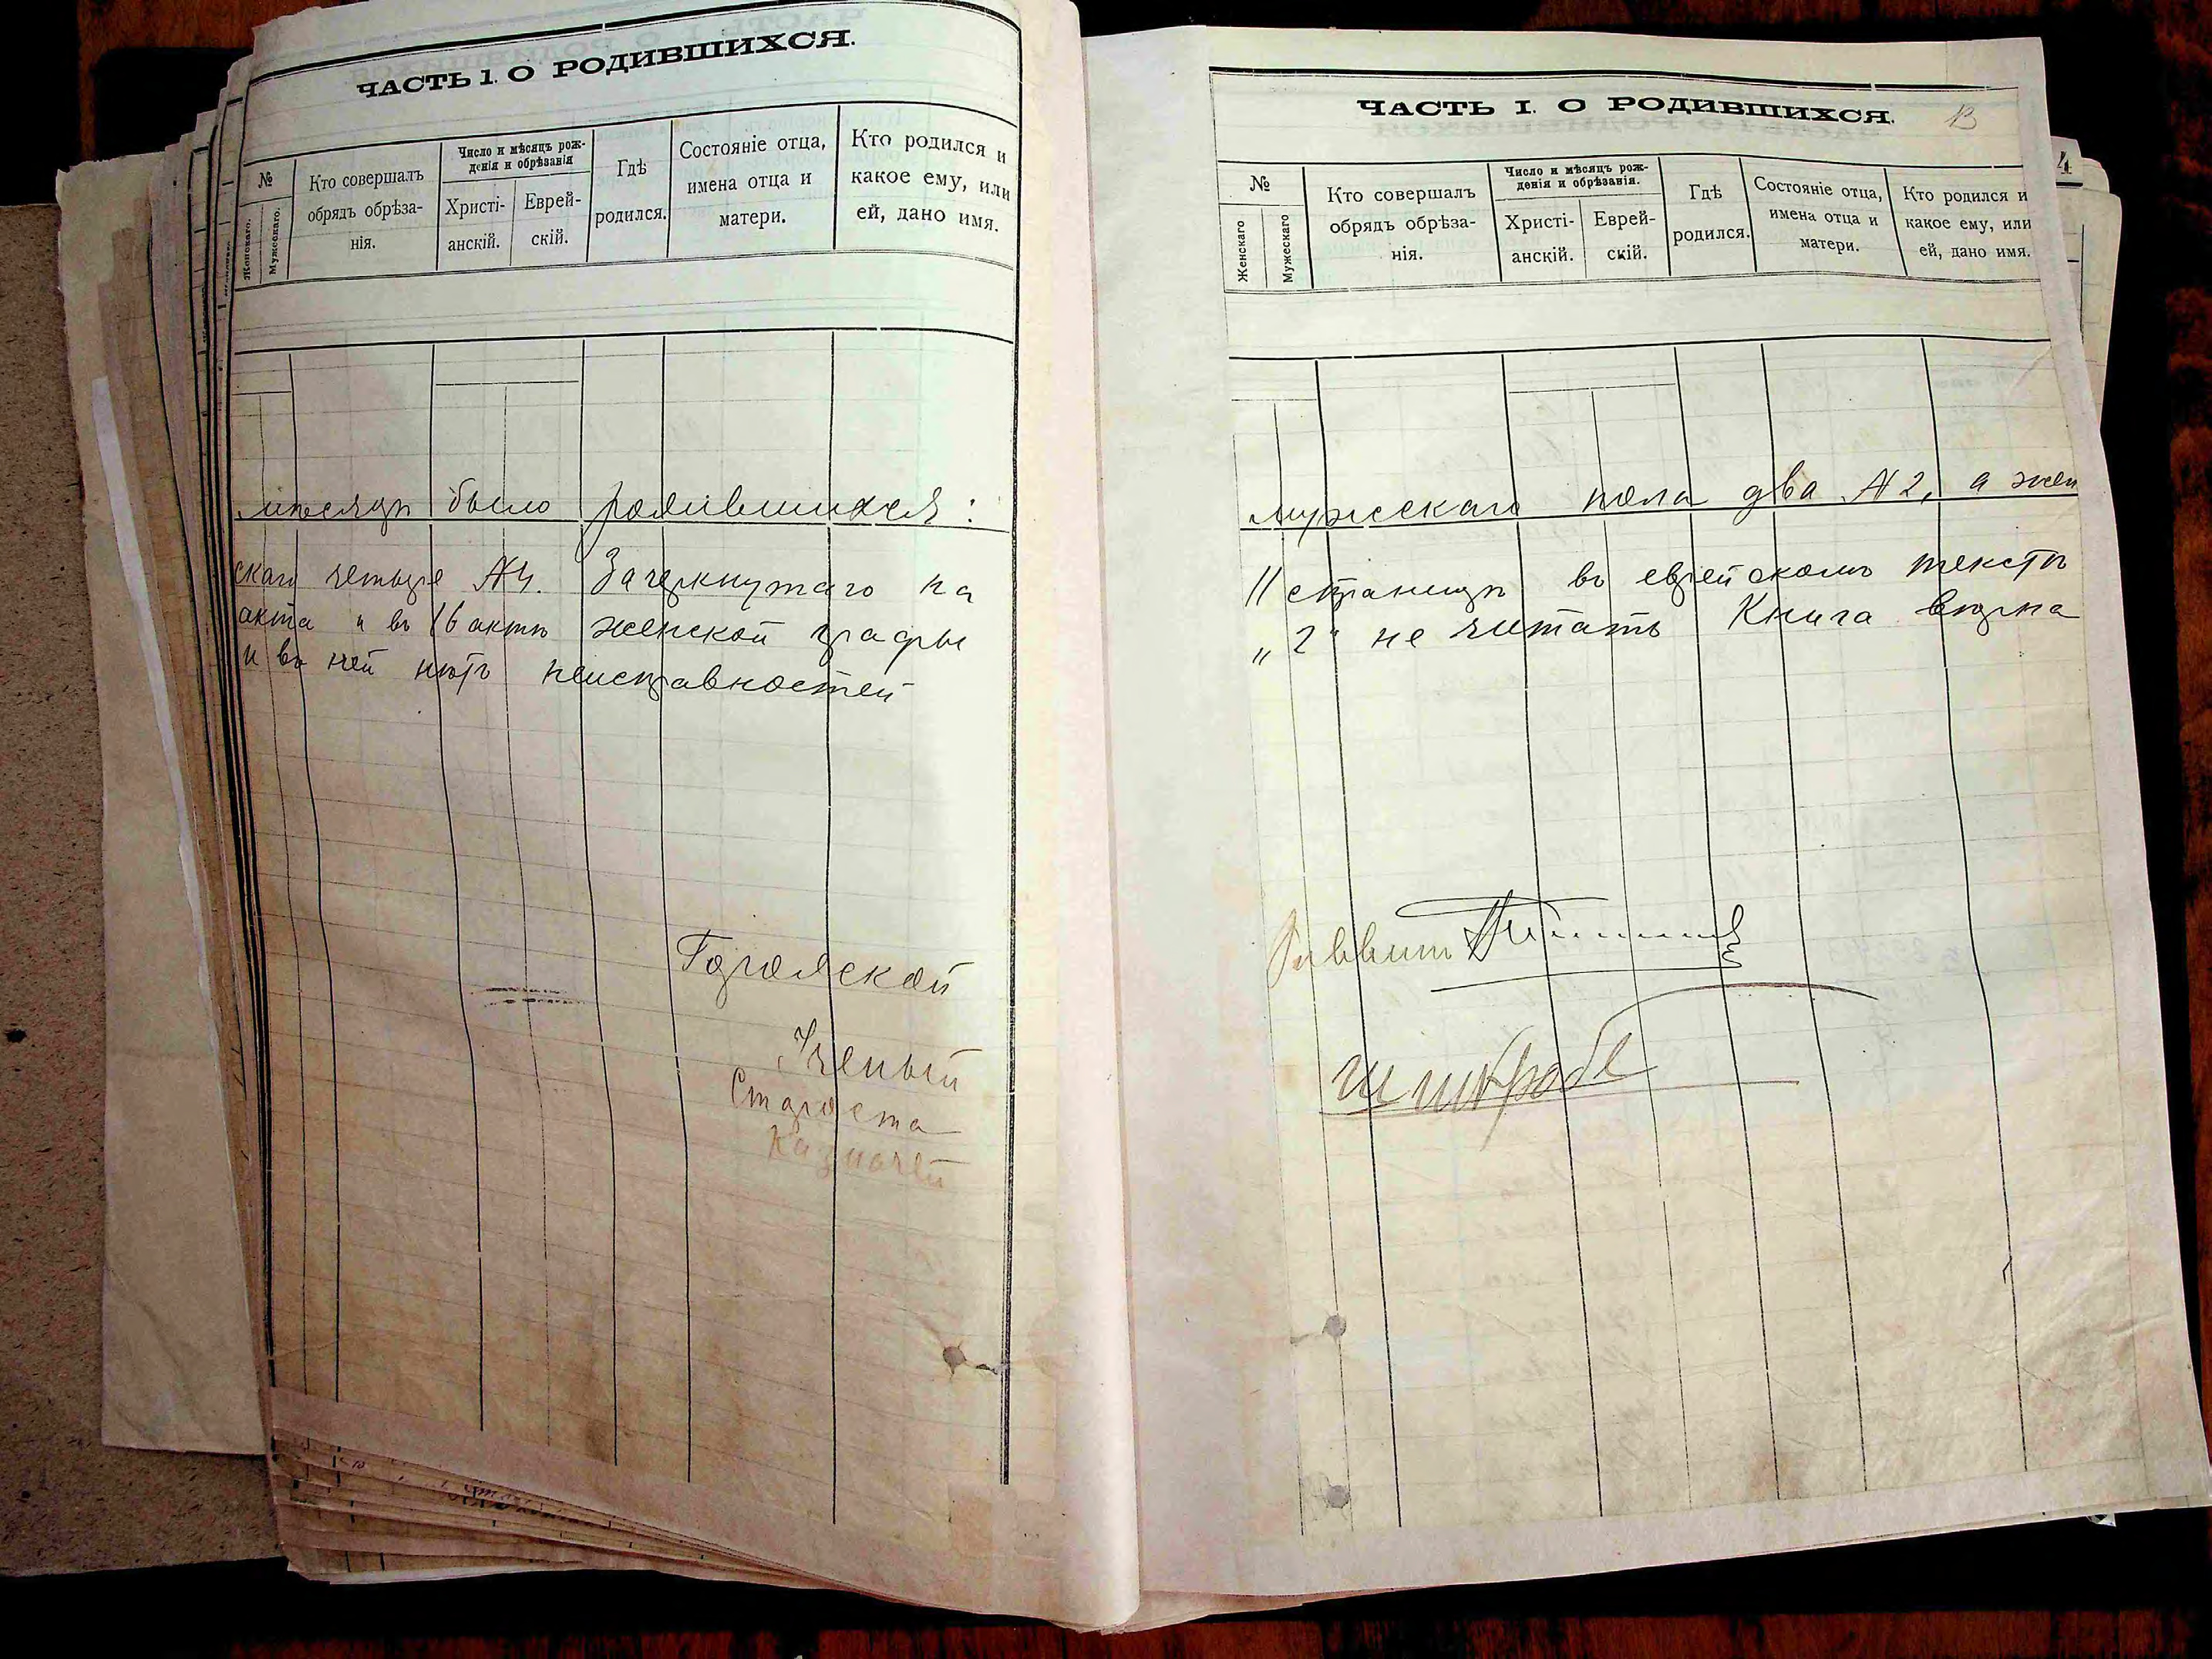 ЧАСТЬ 1. О РОДИВШИХСЯ.
№
Женскаго.
Мужескаго.
Кто совершалъ
обрядъ обрѣза-
нія.
Число и мѣсяцъ рож-
денія и обрѣзанія
Христі-
анскій.
Еврей-
скій.
Гдѣ
родился.
Состояніе отца,
имена отца и
матери.
Кто родился и
какое ему, или
ей, дано имя.
мѣсяцъ было родившихся:
скаго четыре №4. Зачеркнутаго на
акта и въ 16 актѣ женской графы
и въ ней нѣтъ неисправностей
Городской
Ученый
Староста
Казначей
ЧАСТЬ I. О РОДИВШИХСЯ.
13
№
Женскаго
Мужескаго
Кто совершалъ
обрядъ обрѣза-
нія.
Число и мѣсяцъ рож-
денія и обрѣзанія.
Христі-
анскій.
Еврей-
скій.
Гдѣ
родился.
Состояніе отца,
имена отца и
матери.
Кто родился и
какое ему, или
ей, дано имя.
4
мужескаго пола два №2, а жен
11 страницѣ въ еврейскомъ текстѣ
„2" не читать Книга вѣрна
Раввин